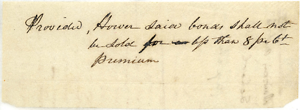 Provided, Hower said bonds shall not
be sold for a less than 8 pr Ct
Premium